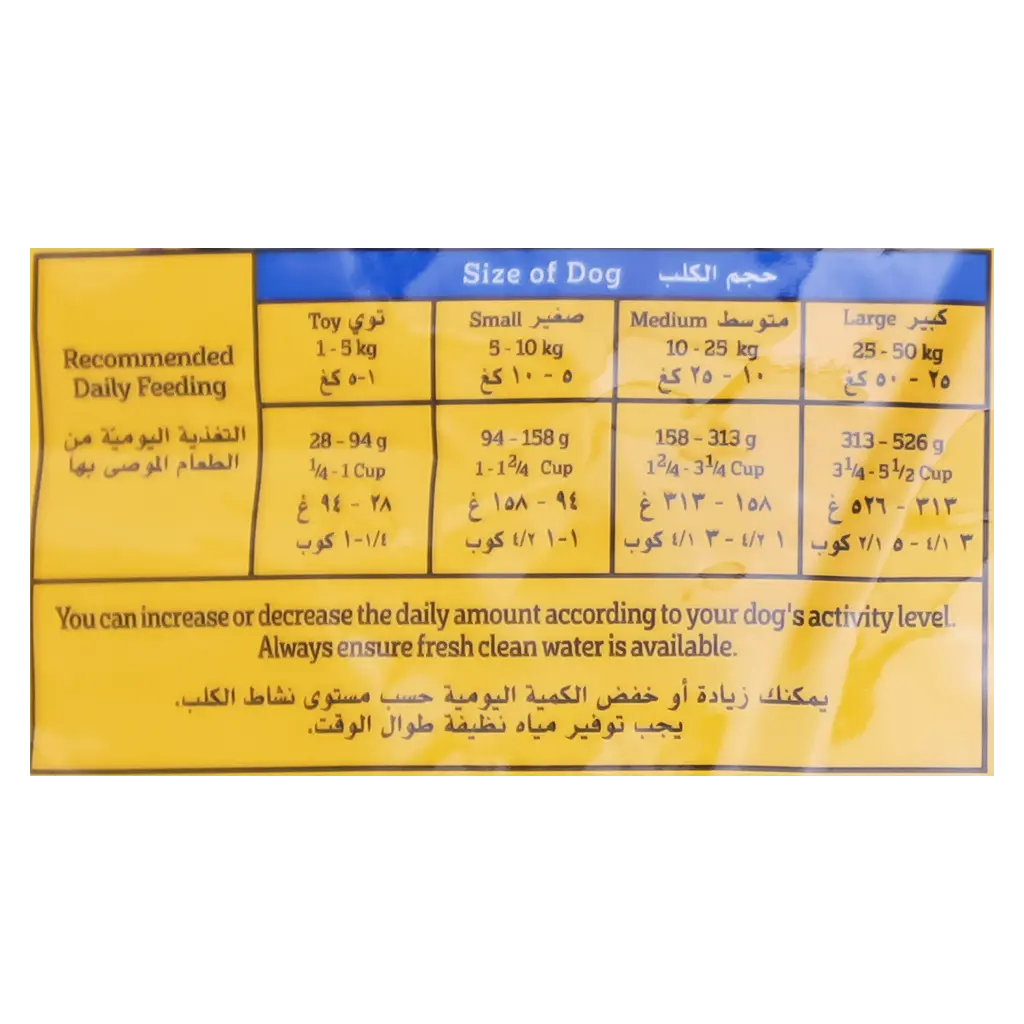 Size of Dog حجم الكلب
Recommended
Daily Feeding
التغذية اليوميّة من
الطعام الموصى بها
Toy توي
1 - 5 kg
١-٥ كغ
Small صغير
5 - 10 kg
٥ - ١٠ كغ
Medium متوسط
10 - 25 kg
١٠ - ٢٥ كغ
Large كبير
25 - 50 kg
٢٥ - ٥٠ كغ
28 - 94 g
1/4 - 1 Cup
٢٨ - ٩٤ غ
١/٤-١ كوب
94 - 158 g
1 - 1 2/4 Cup
٩٤ - ١٥٨ غ
١-١ ٤/٢ كوب
158 - 313 g
1 2/4 - 3 1/4 Cup
١٥٨ - ٣١٣ غ
١ ٤/٢ - ٣ ٤/١ كوب
313 - 526 g
3 1/4 - 5 1/2 Cup
٣١٣ - ٥٢٦ غ
٣ ٤/١ - ٥ ٢/١ كوب
You can increase or decrease the daily amount according to your dog's activity level.
Always ensure fresh clean water is available.
يمكنك زيادة أو خفض الكمية اليومية حسب مستوى نشاط الكلب.
يجب توفير مياه نظيفة طوال الوقت.